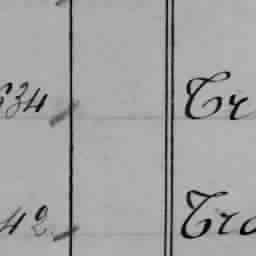 634 Tr
42 Tra